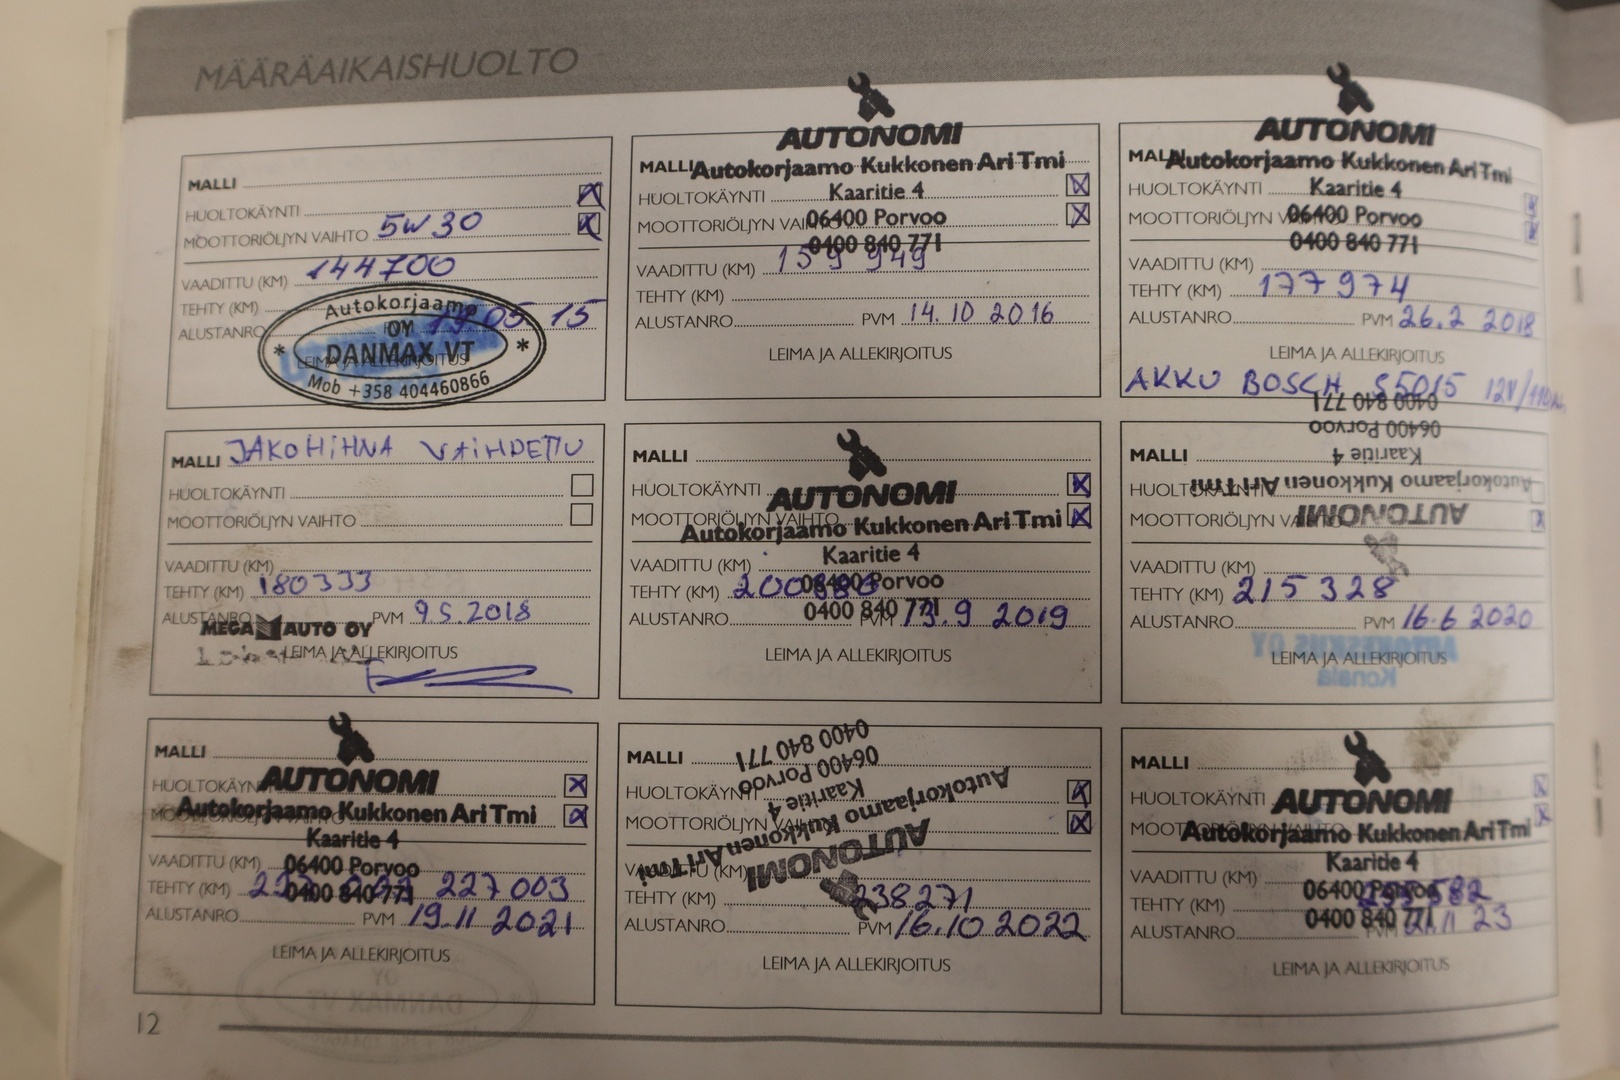 MÄÄRÄAIKAISHUOLTO
MALLI
HUOLTOKÄYNTI
MOOTTORIÖLJYN VAIHTO 5W30
VAADITTU (KM) 144700
TEHTY (KM)
ALUSTANRO 05 15
LEIMA JA ALLEKIRJOITUS
Autokorjaamo
OY
* DANMAX VT *
Mob +358 404460866
AUTONOMI
MALLI Autokorjaamo Kukkonen Ari Tmi
HUOLTOKÄYNTI Kaaritie 4
MOOTTORIÖLJYN VAIHTO 06400 Porvoo
0400 840 771
VAADITTU (KM) 159 949
TEHTY (KM)
ALUSTANRO PVM 14.10 2016
LEIMA JA ALLEKIRJOITUS
AUTONOMI
MALLI Autokorjaamo Kukkonen Ari Tmi
HUOLTOKÄYNTI Kaaritie 4
MOOTTORIÖLJYN 06400 Porvoo
0400 840 771
VAADITTU (KM)
TEHTY (KM) 177974
ALUSTANRO PVM 26.2 2018
LEIMA JA ALLEKIRJOITUS
AKKU BOSCH S5015 12V/110Ah
MALLI JAKOHIHNA VAIHDETTU
HUOLTOKÄYNTI
MOOTTORIÖLJYN VAIHTO
VAADITTU (KM)
TEHTY (KM) 180333
ALUSTANRO PVM 9.5.2018
MEGA AUTO OY
LEIMA JA ALLEKIRJOITUS
MALLI
HUOLTOKÄYNTI
AUTONOMI
MOOTTORIÖLJYN VAIHTO
Autokorjaamo Kukkonen Ari Tmi
Kaaritie 4
VAADITTU (KM)
06400 Porvoo
TEHTY (KM)
0400 840 771
ALUSTANRO PVM 13.9 2019
LEIMA JA ALLEKIRJOITUS
0400 840 771
06400 Porvoo
MALLI Kaaritie 4
HUOLTOKÄYNTI Autokorjaamo Kukkonen Ari Tmi
MOOTTORIÖLJYN VAIHTO AUTONOMI
VAADITTU (KM)
TEHTY (KM) 215 328
ALUSTANRO PVM 16.6 2020
AUTOKESKUS OY
LEIMA JA ALLEKIRJOITUS
Konala
MALLI
HUOLTOKÄYNTI AUTONOMI
Autokorjaamo Kukkonen Ari Tmi
Kaaritie 4
VAADITTU (KM) 06400 Porvoo
TEHTY (KM) 0400 840 771 227 003
ALUSTANRO PVM 19.11 2021
LEIMA JA ALLEKIRJOITUS
MALLI
0400 840 771
06400 Porvoo
HUOLTOKÄYNTI Kaaritie 4
MOOTTORIÖLJYN VAIHTO Autokorjaamo Kukkonen Ari Tmi
AUTONOMI
VAADITTU (KM)
TEHTY (KM) 238271
ALUSTANRO PVM 16.10 2022
LEIMA JA ALLEKIRJOITUS
MALLI
HUOLTOKÄYNTI AUTONOMI
MOOTTORIÖLJYN VAIHTO Autokorjaamo Kukkonen Ari Tmi
Kaaritie 4
VAADITTU (KM)
06400 Porvoo
TEHTY (KM)
0400 840 771
ALUSTANRO PVM 23
LEIMA JA ALLEKIRJOITUS
OY
DANMAX VT
12